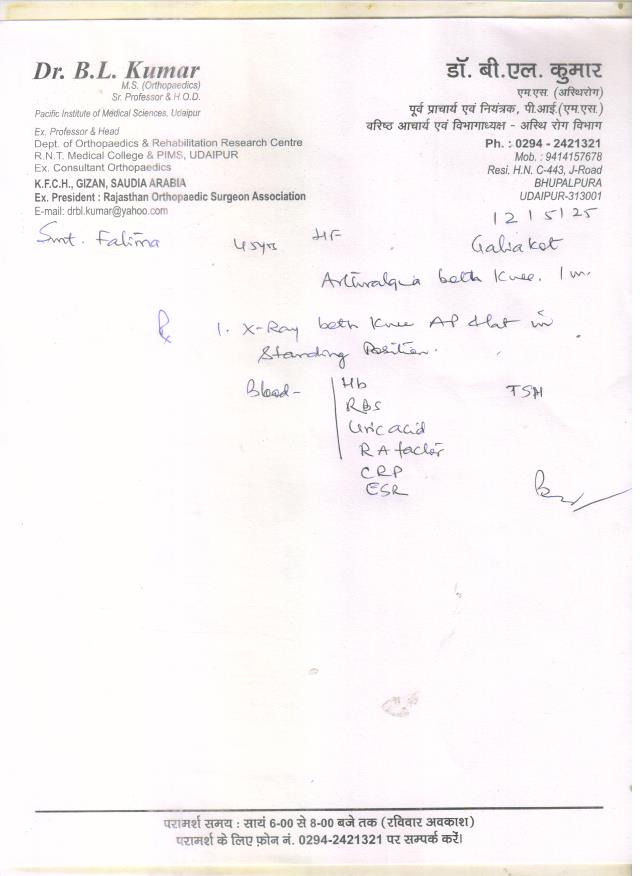 Dr. B.L. Kumar
M.S. (Orthopaedics)
Sr. Professor & H.O.D.
Pacific Institute of Medical Sciences, Udaipur
Ex. Professor & Head
Dept. of Orthopaedics & Rehabilitation Research Centre
R.N.T. Medical College & PIMS, UDAIPUR
Ex. Consultant Orthopaedics
K.F.C.H., GIZAN, SAUDIA ARABIA
Ex. President : Rajasthan Orthopaedic Surgeon Association
E-mail: drbl.kumar@yahoo.com
डॉ. बी.एल. कुमार
एम.एस. (अस्थिरोग)
पूर्व प्राचार्य एवं नियंत्रक, पी.आई.(एम.एस.)
वरिष्ठ आचार्य एवं विभागाध्यक्ष - अस्थि रोग विभाग
Ph. : 0294 - 2421321
Mob. : 9414157678
Resi. H.N. C-443, J-Road
BHUPALPURA
UDAIPUR-313001
12/5/25
Smt. Fatima 45yrs HF Galiakot
Arthralgia both Knee. 1 m.
Rx 1. X-Ray both Knee AP & Lat in
Standing Position.
Blood - Hb TSH
RBS
Uric acid
RA factor
CRP
ESR
परामर्श समय : सायं 6-00 से 8-00 बजे तक (रविवार अवकाश)
परामर्श के लिए फ़ोन नं. 0294-2421321 पर सम्पर्क करें।